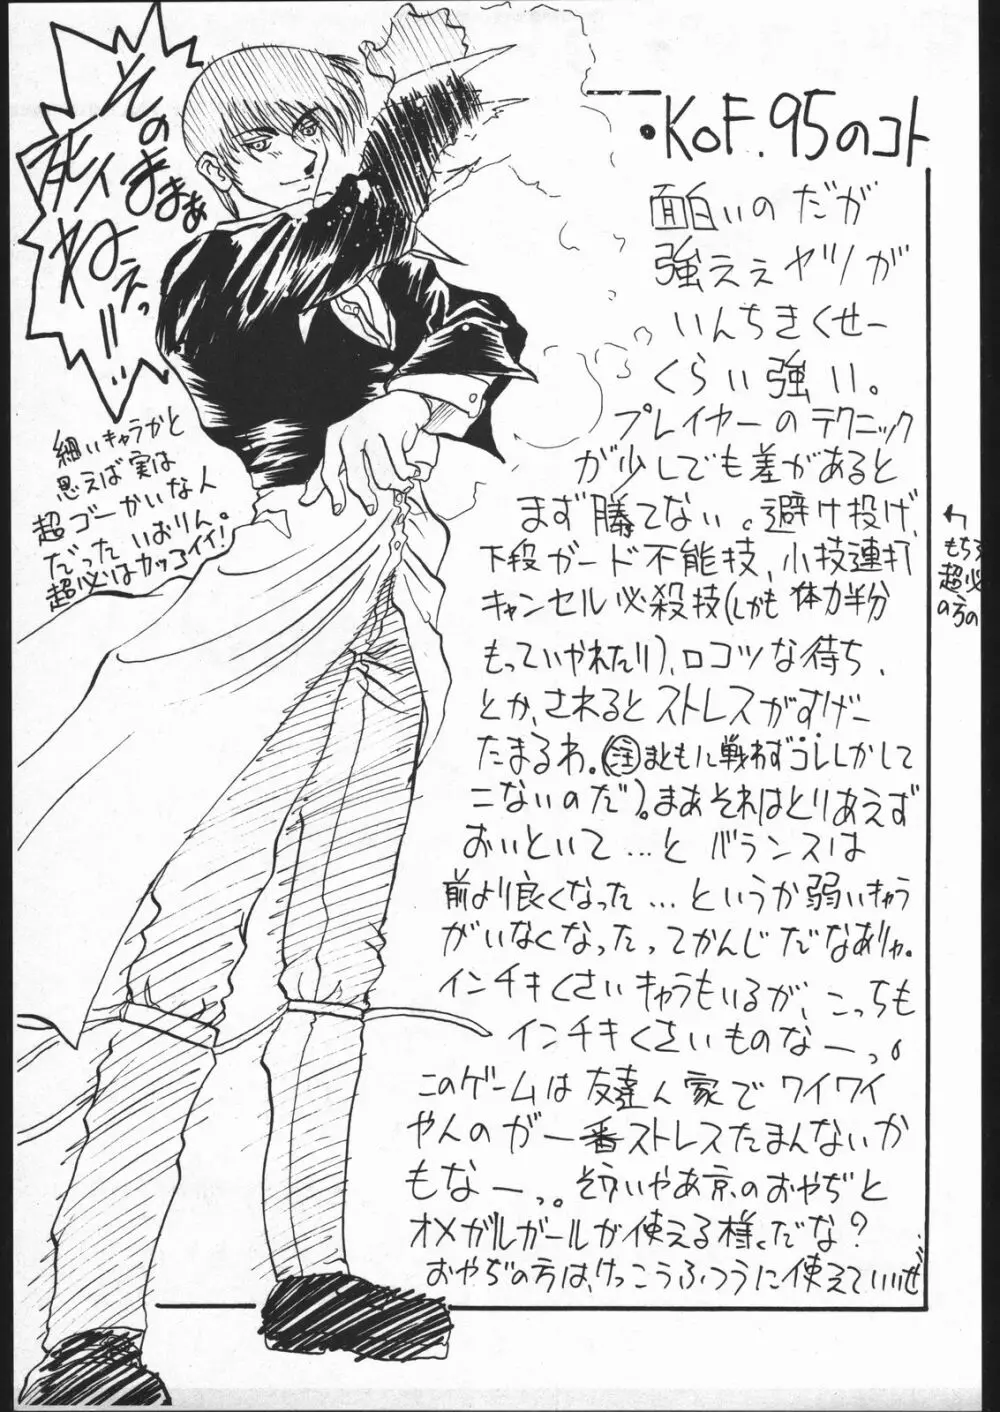 ・KOF.95のコト
面白いのだが
強ええヤツが
いんちきくせー
くらい強い。
プレイヤーのテクニック
が少しでも差があると
まず勝てない。避け投げ、
下段ガード不能技、小技連打
キャンセル必殺技(しかも体力半分
もっていかれたり)、ロコツな待ち、
とか、されるとストレスがすげー
たまるわ。(注まともに戦わずコレしかして
こないのだ)。まあそれはとりあえず
おいといて…と バランスは
前より良くなった…というか弱いキャラ
がいなくなったってかんじだなありゃ。
インチキくさいキャラもいるが、こっちも
インチキくさいものなーっ。
このゲームは友達ん家でワイワイ
やんのが一番ストレスたまんないか
もなーっ。そういやあ京のおやぢと
オメガルガールが使える様だな?
おやぢの方は、けっこうふつうに使えていいぜ…
そのままぁ
死ィ
ねぇっ!!
細いキャラかと
思えば実は
超ゴーかいな人
だったいおりん。
超必はカッコイイ!
もち
超必
の方の